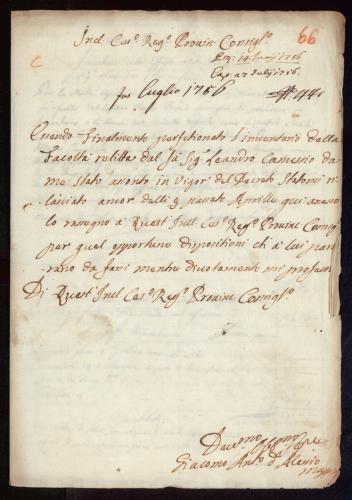 Incl. Ces.º Reg.º Provin. Consigl.º
66
C
14 Junij 1756
27 Julij 1756
Luglio 1756
Essendo finalmente perfectionato l'inventario della
Facoltà relitta dal fù Sig.r Leandro Camessio da
me stato assonto in vigor del Decreto Statomi ri
lasciato ancor dalli 9 passato Aprille qui annesso
lo rassegno a Quest' Incl. Ces.º Reg.º Provinc. Consig.º
per quel opportune dispositioni ch' à lui par
rano da farsi mentre divotamente mi professo
Di Quest' Incl. Ces.º Reg.º Provinc. Consigl.º
Giacomo Ant.º d'Alesio